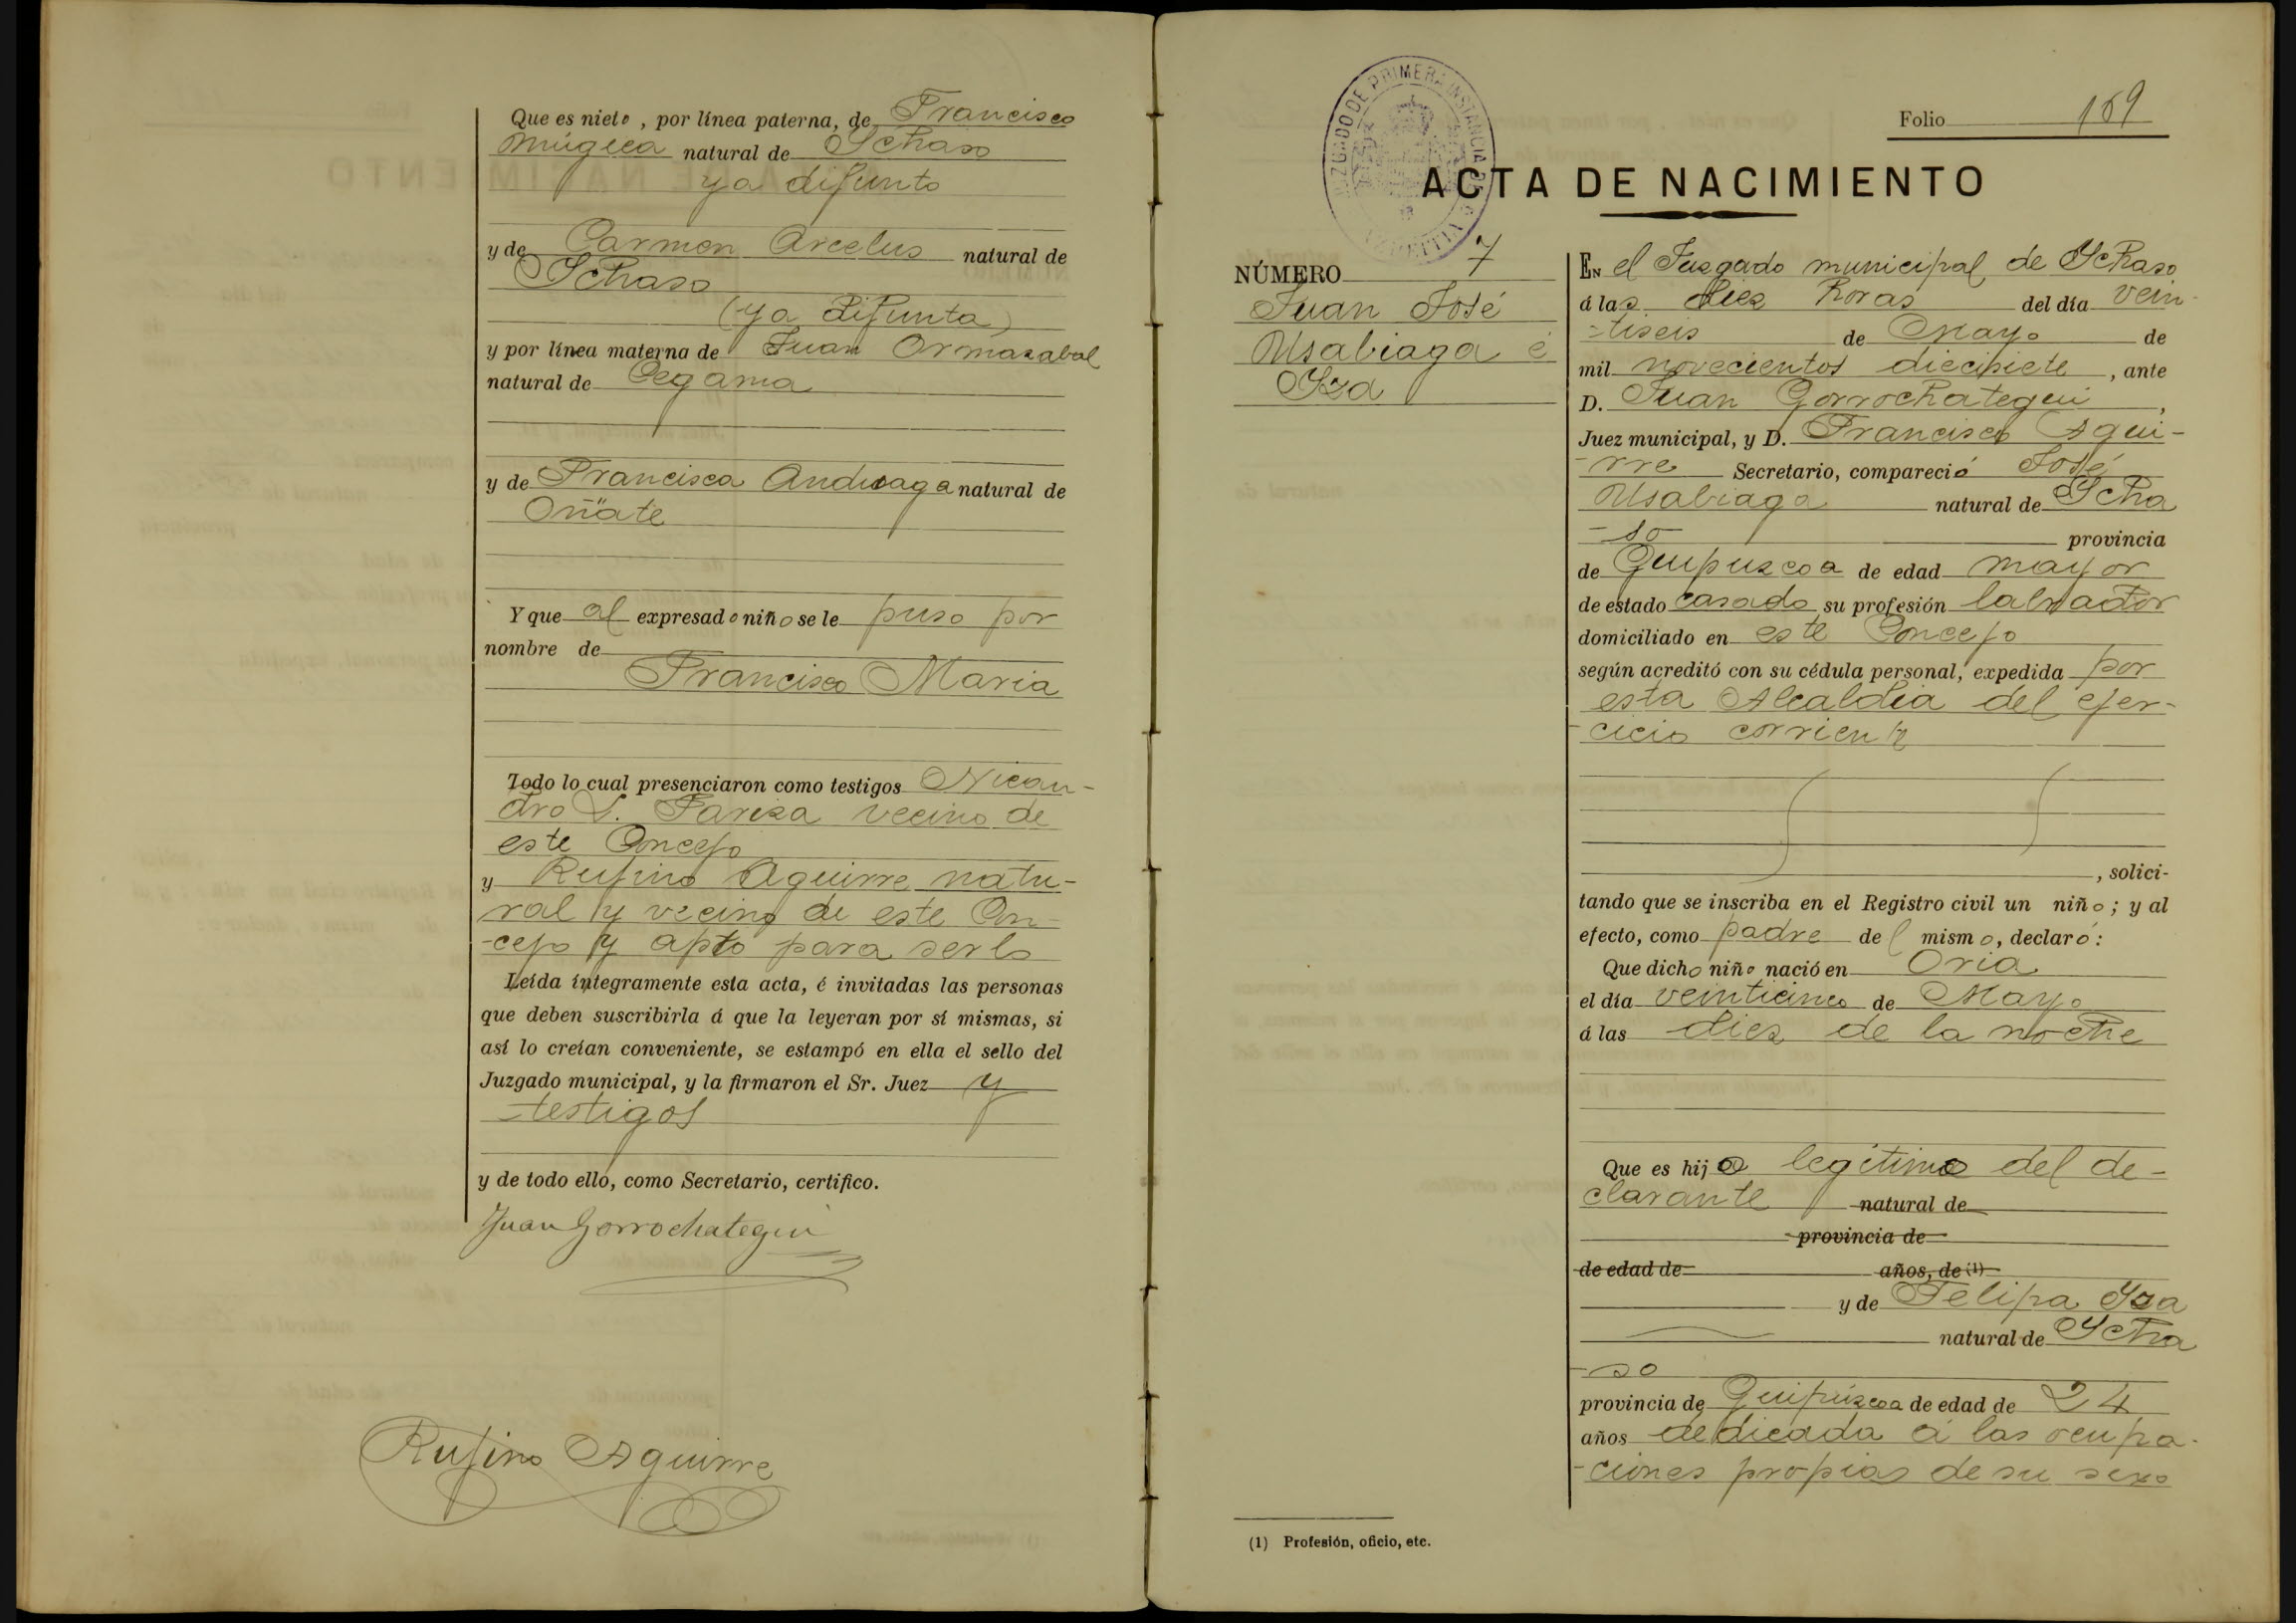 Que es nieto, por línea paterna, de Francisco
Múgica natural de Ichaso
ya difunto
y de Carmen Arcelus natural de
Ichaso
(ya difunta)
y por línea materna de Juan Ormazabal
natural de Cegama
y de Francisca Anduaga natural de
Oñate
Y que al expresado niño se le puso por
nombre de
Francisco Maria
Todo lo cual presenciaron como testigos Nican-
dro L. Pariza vecino de
este Concejo
y Rufino Aguirre natu-
ral y vecino de este Con-
-cejo y apto para serlo
Leída íntegramente esta acta, é invitadas las personas
que deben suscribirla á que la leyeran por sí mismas, si
así lo creían conveniente, se estampó en ella el sello del
Juzgado municipal, y la firmaron el Sr. Juez y
testigos
y de todo ello, como Secretario, certifico.
Juan Gorrochategui
Rufino Aguirre
JUZGADO DE PRIMERA INSTANCIA
AZPEITIA
Folio 169
ACTA DE NACIMIENTO
NÚMERO 7
Juan José
Usabiaga é
Iza
EN el Juzgado municipal de Ichaso
á las diez horas del día vein-
-tiseis de Mayo de
mil novecientos diecisiete, ante
D. Juan Gorrochategui,
Juez municipal, y D. Francisco Agui-
-rre Secretario, compareció José
Usabiaga natural de Icha
-so provincia
de Guipuzcoa de edad mayor
de estado casado su profesión labrador
domiciliado en este Concejo
según acreditó con su cédula personal, expedida por
esta Alcaldia del ejer-
-cicio corriente
, solici-
tando que se inscriba en el Registro civil un niño; y al
efecto, como padre del mismo, declaró:
Que dicho niño nació en Oria
el día veinticinco de Mayo
á las diez de la noche
Que es hijo legítimo del de-
clarante natural de
provincia de
de edad de años, de (1)
y de Felipa Iza
natural de Icha
-so
provincia de Guipúzcoa de edad de 24
años dedicada á las ocupa-
-ciones propias de su sexo
(1) Profesión, oficio, etc.